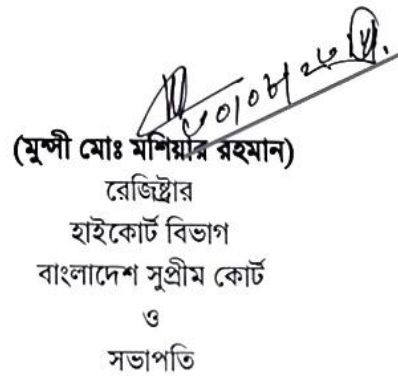 (মুন্সী মোঃ মশিয়ার রহমান)
রেজিষ্ট্রার
হাইকোর্ট বিভাগ
বাংলাদেশ সুপ্রীম কোর্ট
ও
সভাপতি